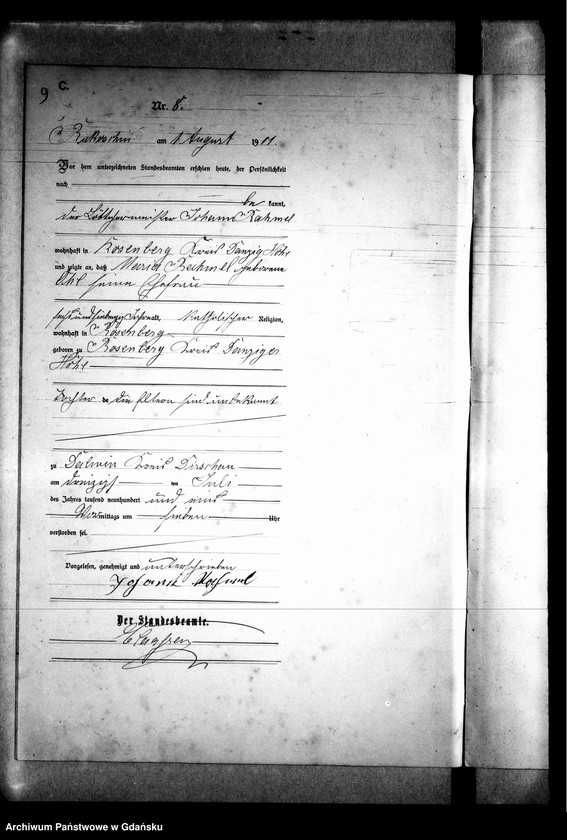 9
C.
Nr. 8.
am 1 August 1901.
Vor dem unterzeichneten Standesbeamten erschien heute, der Persönlichkeit
nach
be kannt,
der Böttchermeister Johann
wohnhaft in Rosenberg Kreis Danzig Höhe
und zeigte an, daß Maria geborene
seine Ehefrau
Jahre alt, katholischer Religion,
wohnhaft in Rosenberg
geboren zu Rosenberg Kreis Danziger
Höhe
Tochter de die Eltern sind unbekannt
zu Dalwin Kreis Dirschau
am dreizigst ten Juli
des Jahres tausend neunhundert und eins
Vormittags um sieben Uhr
verstorben sei.
Vorgelesen, genehmigt und unterschrieben
Johann
Der Standesbeamte.
Archiwum Państwowe w Gdańsku